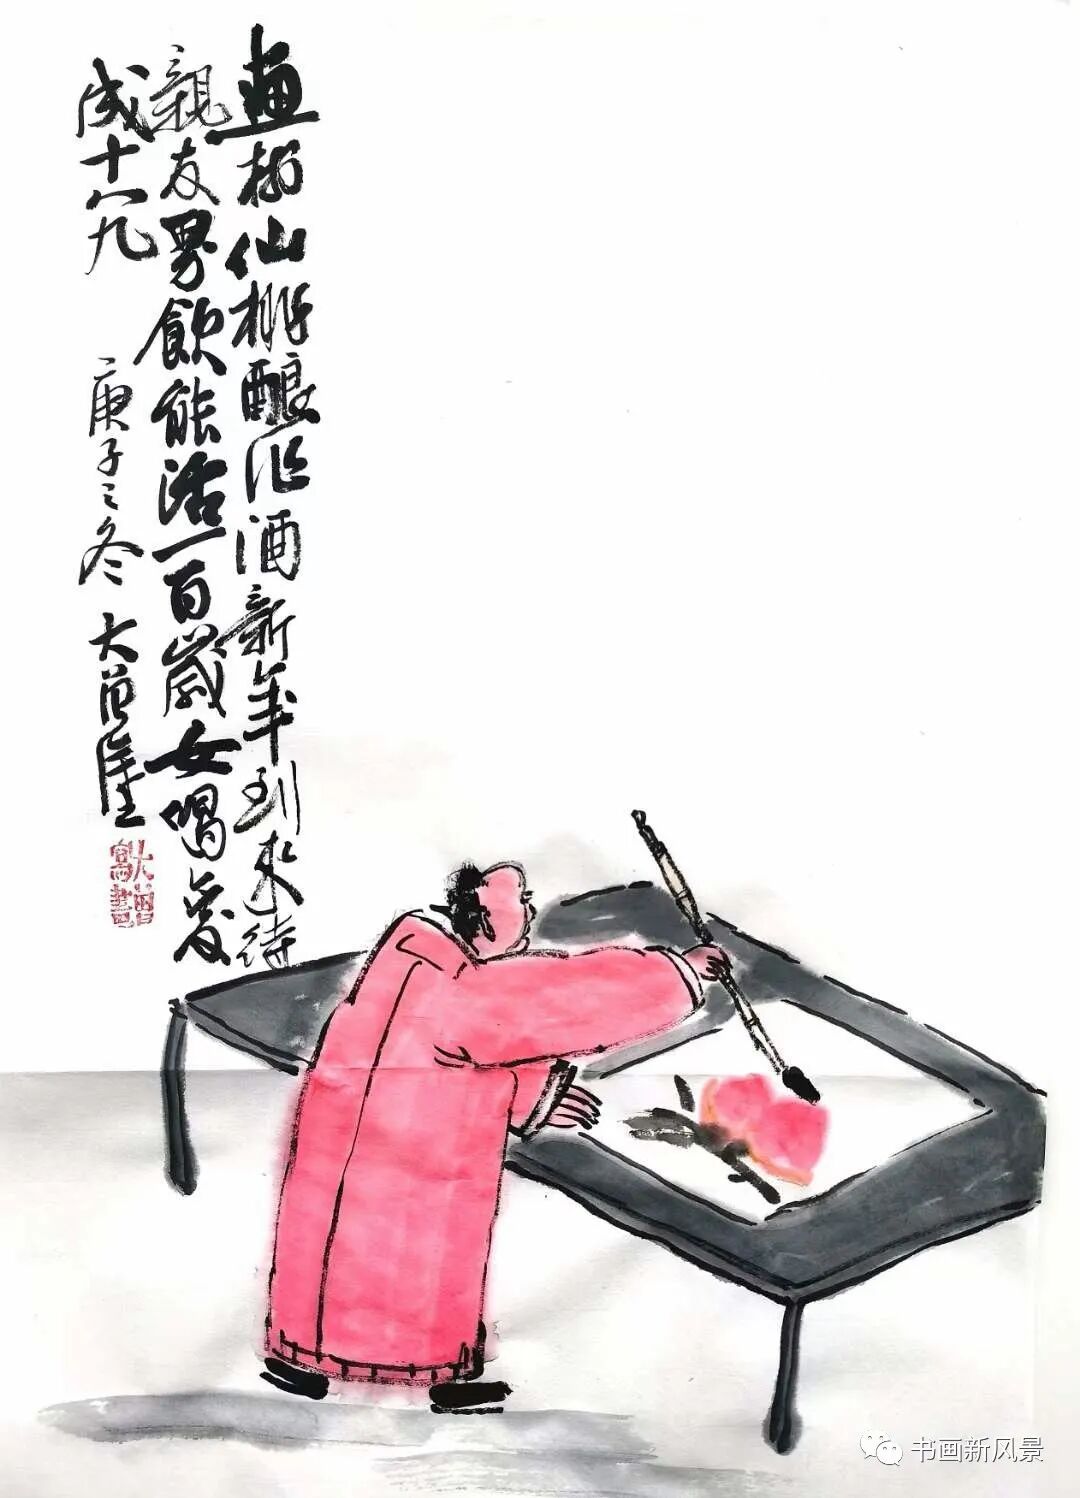 畫仙桃酿作酒新年到来待
親友男飲能活一百歲女喝变
成十八九
庚子之冬 大
书画新风景